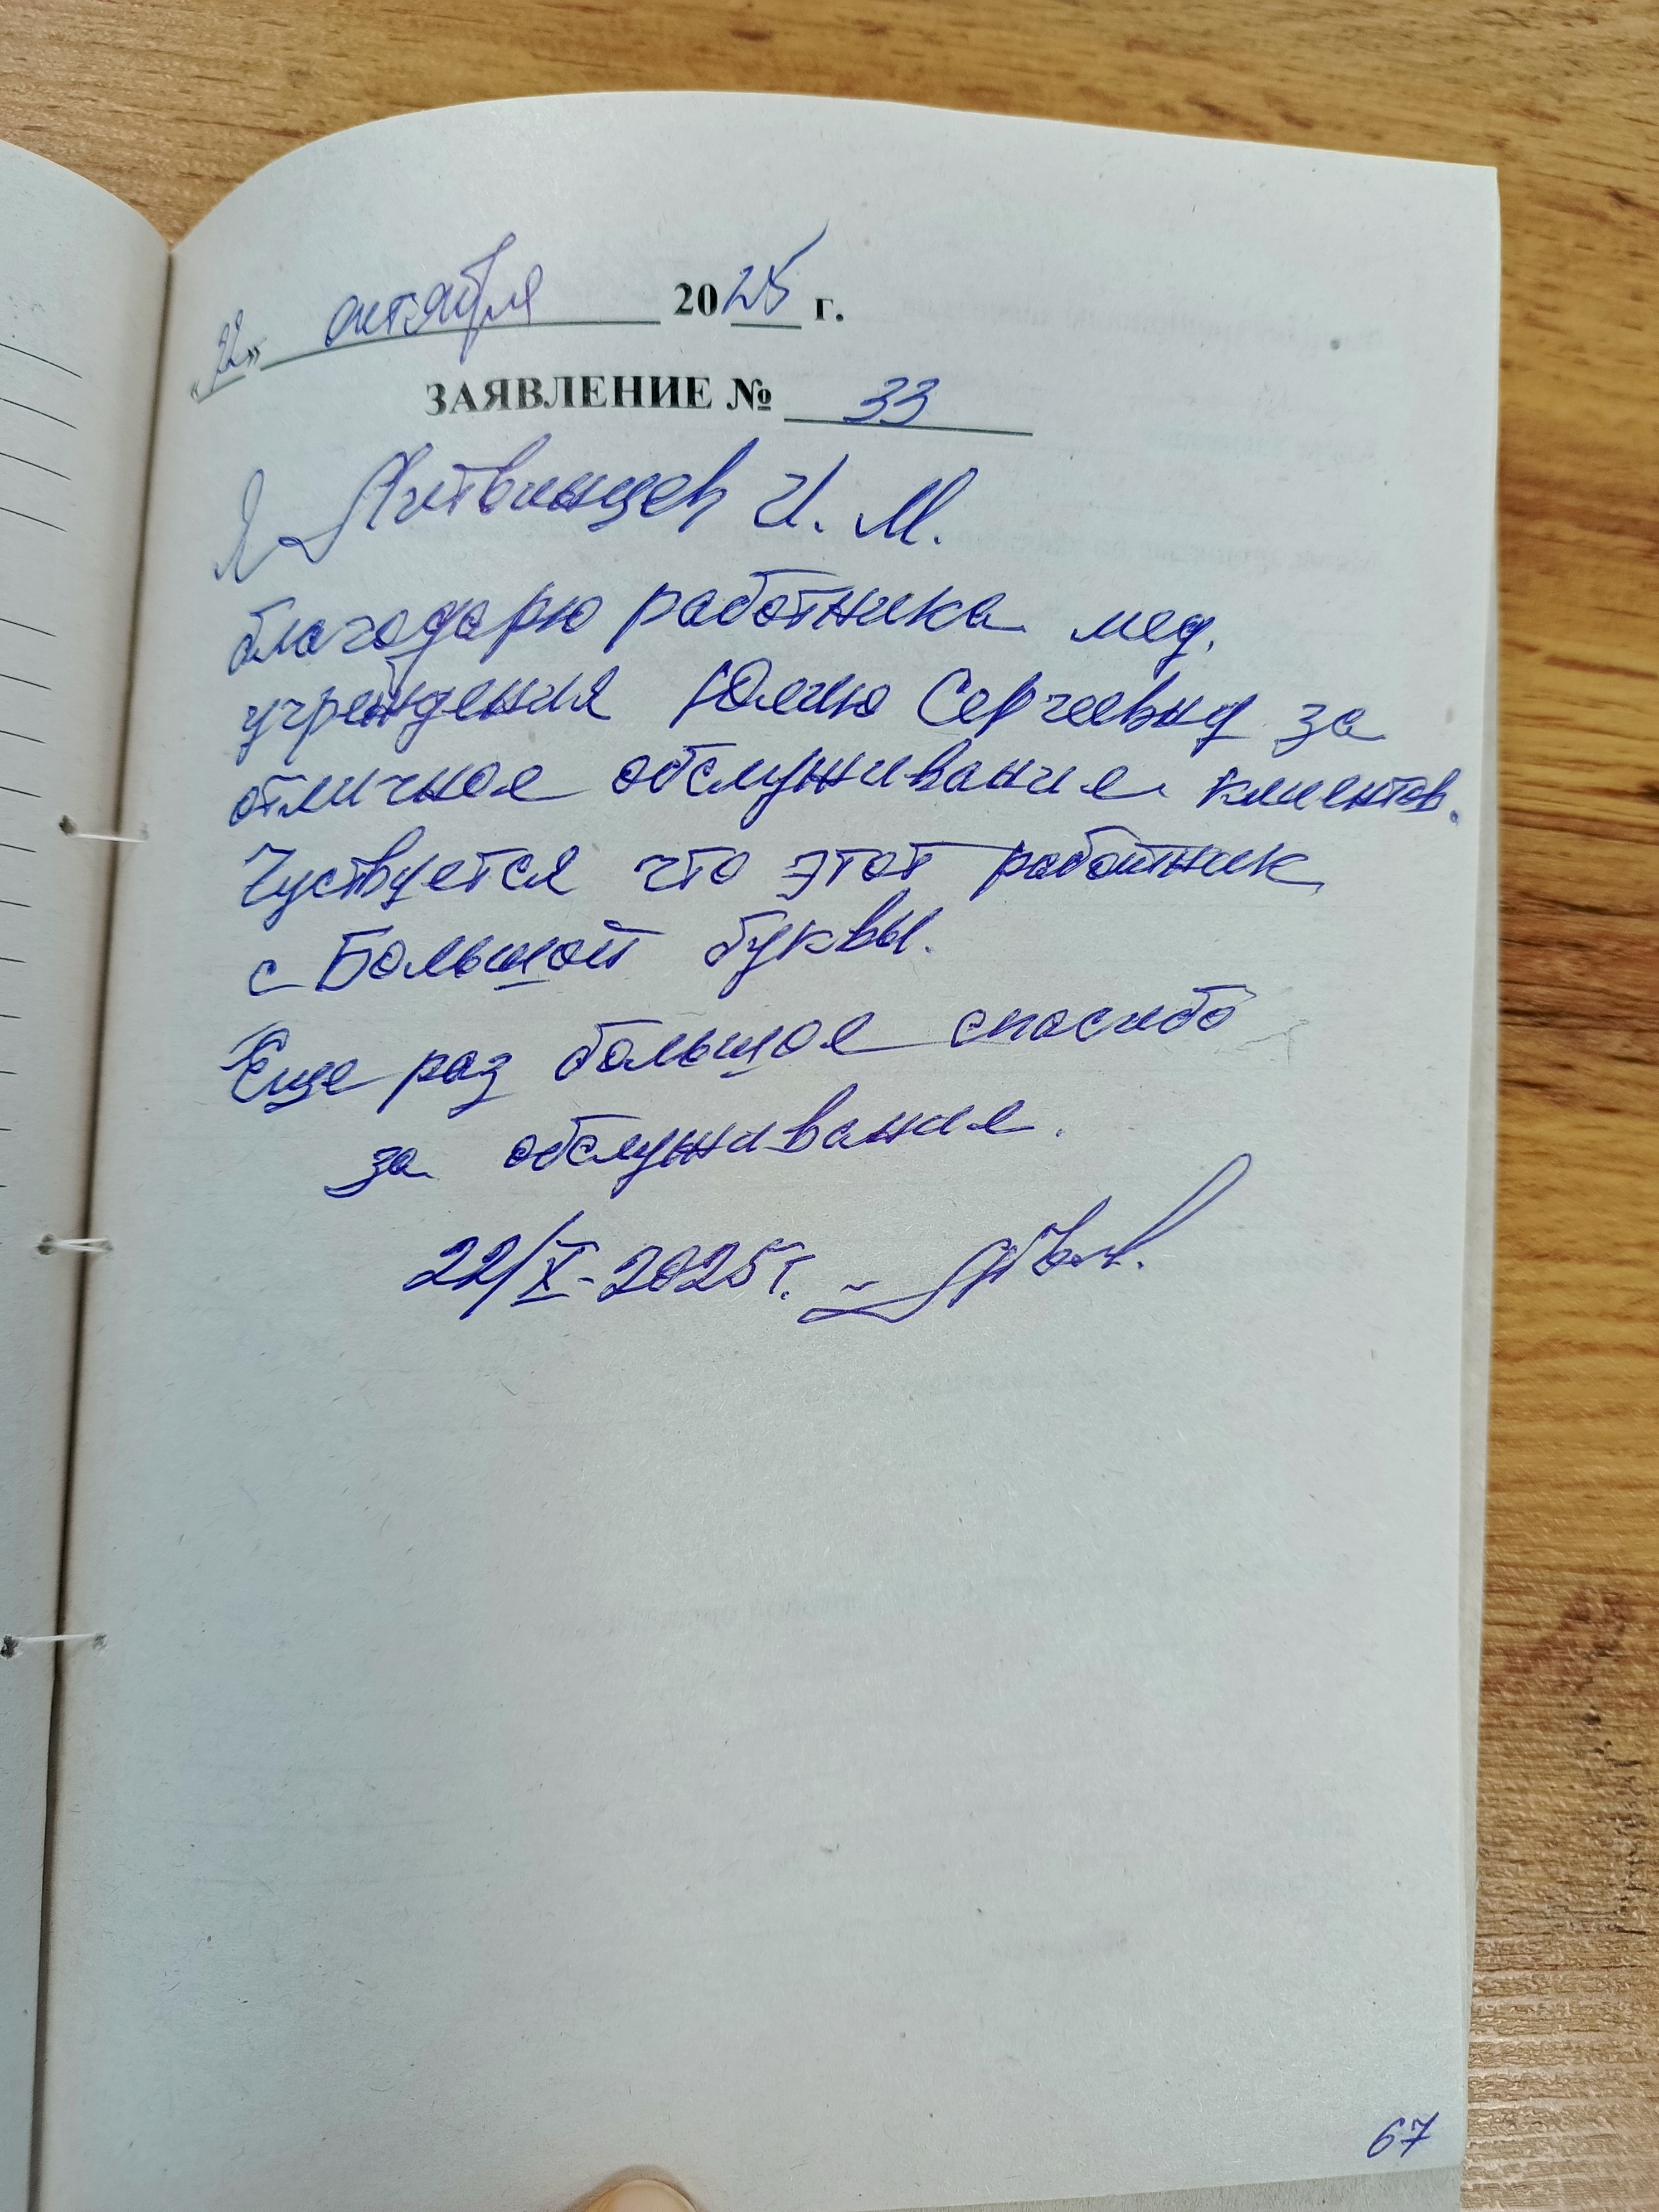 «22» октября 2025 г.
ЗАЯВЛЕНИЕ № 33
Я Литвинцев И. М.
благодарю работника мед.
учреждения Юлию Сергеевну за
отличное обслуживание клиентов.
Чуствуется что этот работник
с Большой буквы.
Еще раз большое спасибо
за обслуживание.
22/X-2025г.
67